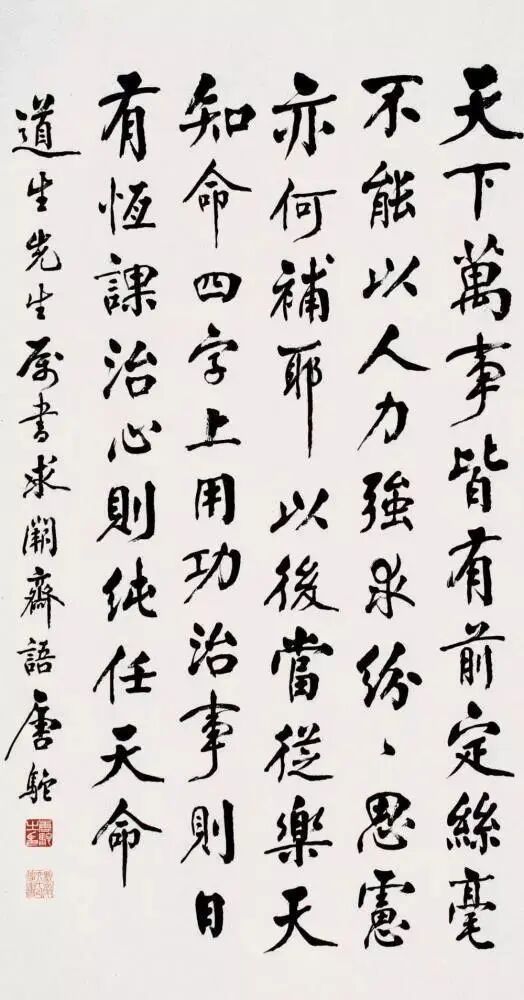 天下萬事皆有前定絲毫
不能以人力強求紛〻思慮
亦何補耶以後當從樂天
知命四字上用功治事則日
有恆課治心則純任天命
道生先生屬書求闕齋語唐駝